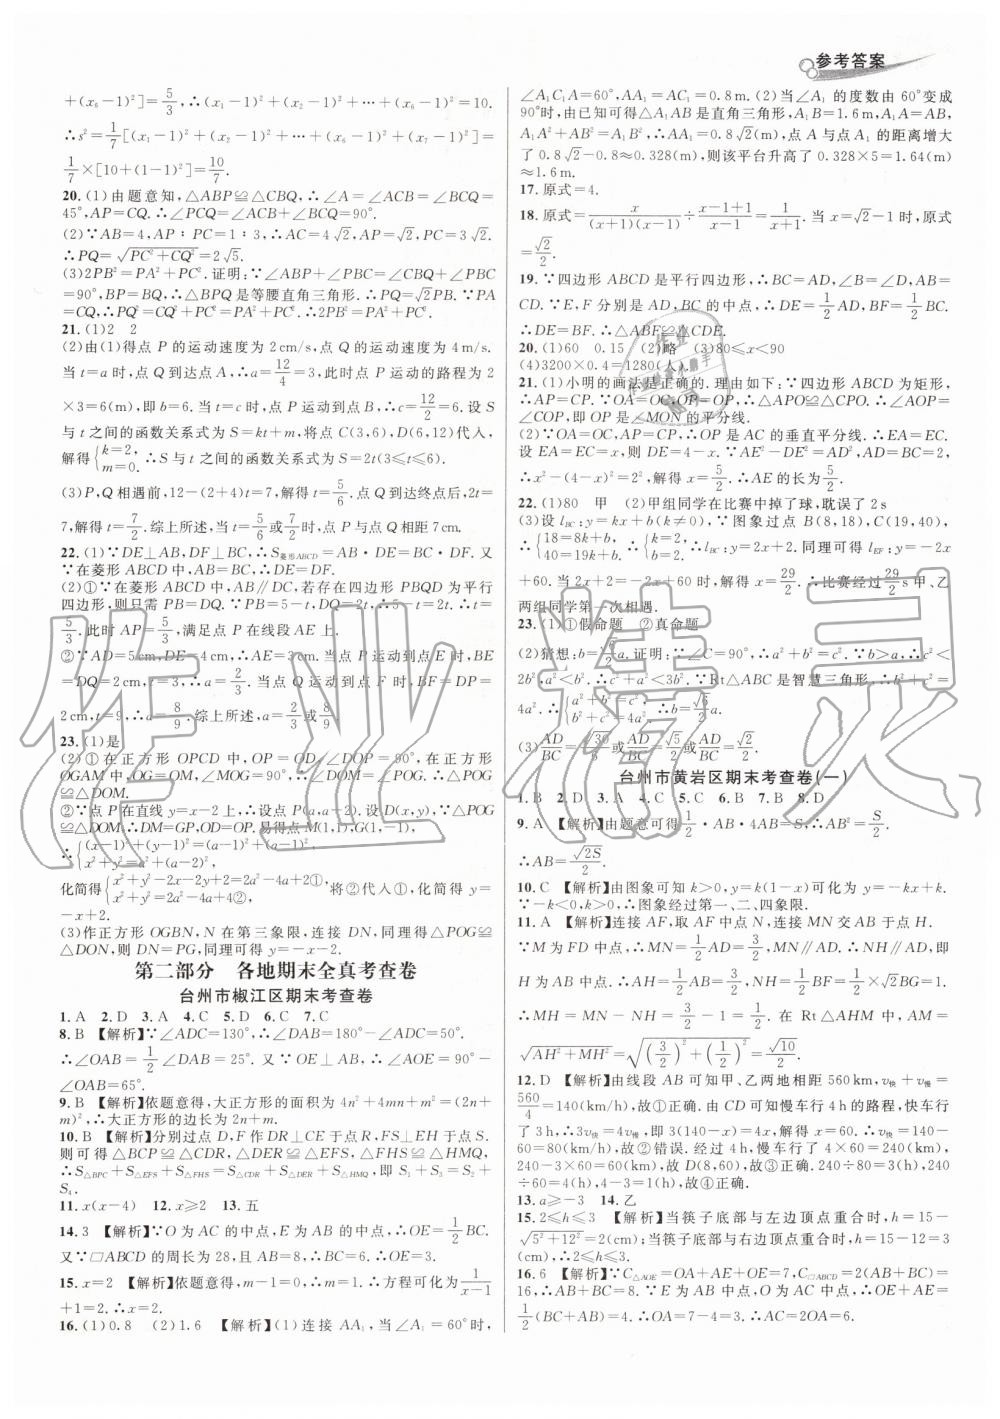 参考答案
+(x₆-1)²]=5/3,∴(x₁-1)²+(x₂-1)²+…+(x₆-1)²=10.
∴s²=1/7[(x₁-1)²+(x₂-1)²+…+(x₆-1)²+(x₇-1)²]=
1/7×[10+(1-1)²]=10/7.
20.(1)由题意知,△ABP≌△CBQ,∴∠A=∠ACB=∠BCQ=
45°,AP=CQ.∴∠PCQ=∠ACB+∠BCQ=90°.
(2)∵AB=4,AP∶PC=1∶3,∴AC=4√2,AP=√2,PC=3√2.
∴PQ=√(PC²+CQ²)=2√5.
(3)2PB²=PA²+PC².证明:∵∠ABP+∠CBP=∠CBQ+∠PBC
=90°,BP=BQ,∴△PBQ是等腰直角三角形.∴PQ=√2PB.∵PA
=CQ,∴PQ²=PC²+CQ²=PA²+PC².∴2PB²=PA²+PC².
21.(1)2 2
(2)由(1)得点 P 的运动速度为 2 m/s,点 Q 的运动速度为 4 m/s.
当 t=a 时,点 Q 到达点 A,∴a=12/4=3,此时点 P 运动的路程为 2
×3=6(m),即 b=6.当 t=c 时,点 P 运动到点 B,∴c=12/2=6.设 S
与 t 之间的函数关系式为 S=kt+m,将点 C(3,6),D(6,12)代入,
解得{k=2, m=0.∴S 与 t 之间的函数关系式为 S=2t(3≤t≤6).
(3)P,Q 相遇前,12-(2+4)t=7,解得 t=5/6.点 Q 到达终点后,2t=
7,解得 t=7/2.综上所述,当 t=5/6或7/2时,点 P 与点 Q 相距 7cm.
22.(1)∵DE⊥AB,DF⊥BC,∴S菱形ABCD=AB·DE=BC·DF.又
∵在菱形 ABCD 中,AB=BC,∴DE=DF.
(2)①∵在菱形 ABCD 中,AB∥DC,若存在四边形 PBQD 为平行
四边形,则只需 PB=DQ.∵PB=5-t,DQ=2t,∴5-t=2t,∴t=
5/3.此时 AP=5/3,满足点 P 在线段 AE 上.
②∵AD=5cm,DE=4cm,∴AE=3cm.当点 P 运动到点 E 时,BE
=DQ=2cm,t=3,∴a=2/3.当点 Q 运动到点 F 时,BF=DP=
2cm,t=9,∴a=8/9.综上所述,a=2/3或8/9.
23.(1)是
(2)①在正方形 OPCD 中,OP=OD,∠POD=90°.在正方形
OGAM 中,OG=OM,∠MOG=90°.∴∠DOM=∠POG.∴△POG≌
△DOM(SAS).
②∵点 P 在直线 y=x-2 上,∴设点 P(a,a-2).设 D(x,y),∵△POG≌
△DOM,∴DM=GP,OD=OP.易得点 M(1,1),G(1,-1),
∴{(x-1)²+(y-1)²=(a-1)²+(a-2+1)², x²+y²=a²+(a-2)²,
化简得{x²+y²-2x-2y=2a²-4a+2①, x²+y²=2a²-4a+4②, 将②代入①,化简得 y=
-x+2.
(3)作正方形 OGBN,N 在第三象限,连接 DN,同理得△POG≌
△DON,则 DN=PG,同理可得 y=-x-2.
第二部分 各地期末全真考查卷
台州市椒江区期末考查卷
1.A 2.D 3.A 4.C 5.D 6.C 7.C
8.B 【解析】∵∠ADC=130°,∴∠DAB=180°-∠ADC=50°.
∴∠OAB=1/2∠DAB=25°.又∵OE⊥AB,∴∠AOE=90°-
∠OAB=65°.
9.B 【解析】依题意得,大正方形的面积为 4n²+4mn+m²=(2n+
m)²,∴大正方形的边长为 2n+m.
10.B 【解析】分别过点 D,F 作 DR⊥CE 于点 R,FS⊥EH 于点 S.
则可得 △BCP≌△CDR,△DER≌△EFS,△FHS≌△HMQ,
∴S△BPC+S△EFS+S△HMQ=S△CDR+S△EFS+S△FHS,即 S₁+S₃=S₂+
S₄.
11.x(x-4) 12.x≥2 13.五
14.3 【解析】∵O 为 AC 的中点,E 为 AB 的中点,∴OE=1/2BC.
又∵□ABCD 的周长为 28,且 AB=8,∴BC=6,∴OE=3.
15.x=2 【解析】依题意得,m-1=0,∴m=1.∴方程可化为1/(x-1)
+1=2.∴x=2.
16.(1)0.8 (2)1.6 【解析】(1)连接 AA₁,当∠A₁=60°时,
∠A₁C₁A=60°,AA₁=AC₁=0.8m.(2)当∠A₁ 的度数由 60°变成
90°时,由已知可得△A₁AB 是直角三角形,A₁B=1.6m,A₁A=AB,
A₁A²+AB²=A₁B²,∴AA₁=0.8√2(m),点 A 与点 A₁ 的距离增大
了 0.8√2-0.8≈0.328(m),则该平台升高了 0.328×5=1.64(m)
≈1.6m.
17.原式=4.
18.原式=x/((x+1)(x-1))÷(x-1+1)/(x-1)=1/(x+1).当 x=√2-1 时,原式
=√2/2.
19.∵四边形 ABCD 是平行四边形,∴BC=AD,∠B=∠D,AB=
CD.∵E,F 分别是 AD,BC 的中点,∴DE=1/2AD,BF=1/2BC.
∴DE=BF.∴△ABF≌△CDE.
20.(1)60 0.15 (2)略 (3)80≤x<90
(4)3200×0.4=1280(人).
21.(1)小明的画法是正确的.理由如下:∵四边形 ABCD 为矩形,
∴AP=CP.∵OA=OC,OP=OP,∴△APO≌△CPO.∴∠AOP=
∠COP,即 OP 是∠MON 的平分线.
(2)∵OA=OC,AP=CP,∴OP 是 AC 的垂直平分线.∴EA=EC.
设 EA=EC=x,则 DE=4-x.∵AE²-DE²=AD²,AD=BC=2,
∴x²-(4-x)²=2²,解得 x=5/2.∴AE 的长为5/2.
22.(1)80 甲 (2)甲组同学在比赛中掉了球,耽误了 2s
(3)设 l_BC:y=kx+b(k≠0),∵图象过点 B(8,18),C(19,40),
∴{18=8k+b, 40=19k+b,∴{k=2, b=2.∴l_BC:y=2x+2.同理可得 l_EF:y=-2x
+60.当 2x+2=-2x+60 时,解得 x=29/2.∴比赛经过29/2s 甲、乙
两组同学第一次相遇.
23.(1)①假命题 ②真命题
(2)猜想:b=√6/2a.证明:∵∠C=90°,∴a²+b²=c².∵b>a,∴c²<
2b²,a²<b²,∴c²+a²<3b².∵Rt△ABC 是智慧三角形,∴b²+c²=
4a².∴{a²+b²=c², b²+c²=4a².∴b=√6/2a.
(3)AD/BC=√30/6或AD/BC=√6/2或AD/BC=√2/2.
台州市黄岩区期末考查卷(一)
1.B 2.D 3.A 4.C 5.C 6.B 7.B 8.D
9.A 【解析】由题意可得1/2·AB·4AB=S,∴AB²=S/2.
∴AB=√2S/2.
10.C 【解析】由图象可知 k>0,y=k(1-x)可化为 y=-kx+k.
∵-k<0,k>0,∴图象经过第一、二、四象限.
11.A 【解析】连接 AF,取 AF 中点 N,连接 MN 交 AB 于点 H.
∵M 为 FD 中点,∴MN=1/2AD=3/2,MN∥AD,∴NH∥AD,即
NH⊥AB,∴AH=1/2AB=1/2,NH=1/2BF=1/2×√2BG=1.
∴MH=MN-NH=3/2-1=1/2.在 Rt△AHM 中,AM=
√(AH²+MH²)=√((3/2)²+(1/2)²)=√10/2.
12.D 【解析】由线段 AB 可知甲、乙两地相距 560km,v快+v慢=
560/4=140(km/h),故①正确.由 CD 可知慢车行 4h 的路程,快车行
了 3h,∴3v快=4v慢,即 3(140-x)=4x.∴x=60(km/h),140-
60=80(km/h),故②错误.经过 4h,慢车行了 4×60=240(km),
240-3×60=60(km),故 D(8,60),故③正确.快车所用时间:240
÷60=4(h),故④正确.
13.a≥-3 14.乙
15.2≤h≤3 【解析】当筷子底部与左边顶点重合时,h=15-
√(5²+12²)=2(cm);当筷子底部与右边顶点重合时,h=15-12=3
(cm),∴2≤h≤3.
16.6 【解析】∵C△AOE=OA+AE+OE=7,C□ABCD=2(AB+BC)=
16,∴AB+BC=8.∵E 为 AB 中点,O 为 AC 中点,∴OE+AE=
1/2(BC+AB)=4.∴OA=7-4=3.∴AC=2OA=6.
作业精灵